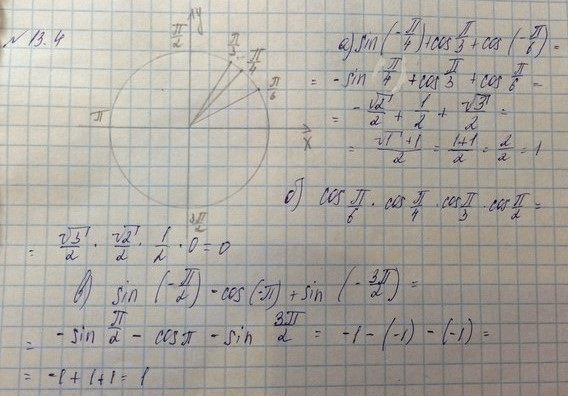 №13.4
1y
π/2
π/3
π/4
π/6
π
x
3π/2
а) sin(-π/4)+cos π/3+cos(-π/6)=
= -sin π/4+cos π/3+cos π/6=
= -√2/2+1/2+√3/2=
= √1+1/2=1+1/2=2/2=1
б) cos π/6·cos π/4·cos π/3·cos π/2=
= √3/2·√2/2·1/2·0=0
в) sin(-π/2)-cos(-π)+sin(-3π/2)=
= -sin π/2-cos π-sin 3π/2= -1-(-1)-(-1)=
= -1+1+1=1